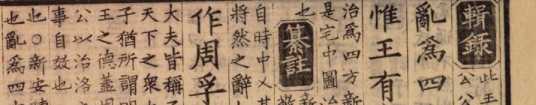 輯録
此王
公公
亂爲四
惟王有
治爲四方新
是宅中圖治
也
纂註
新
自時中乂其
將然之辭
作周孚
大夫皆稱子
天下之衆
子猶所謂明
王之德蓋周
公以治洛
事自效也
也○新安陳
也亂爲四